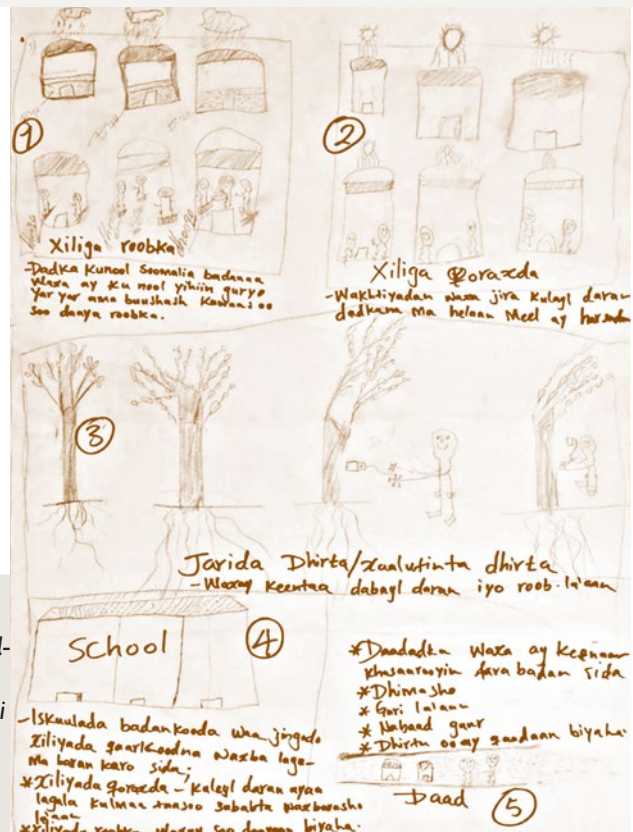 1
Xiliga roobka
-Dadka Kunool Soomalia badanaa
Waxa ay Ku nool yihiin guryo
Yar yar ama buushash
soo daaya roobka.
2
Xiliga Qoraxda
-Wakhtiyadan waxa jira Kulayl daran
dadkana Ma helaan Meel ay
3
Jarida Dhirta/xaalufinta dhirta
-Waxay Keentaa dabayl daran iyo roob la'aan
4
School
-Iskuulada badankooda waa jingado
Xiliyada qaarkoodna waxba lagu
Ma baran karo sida;
*Xiliyada qoraxda - Kulayl daran ayaa
lagala Kulmaa sababta waxbarasho
la'aan
*Xiliyada roobka waxay soo daayaan biyaha.
*Daadadka Waxa ay Keenaan
Khasaarooyin fara badan sida
*Dhimasho
*Guri la'aan
*Nabaad guur
*Dhirtu oo ay qaadaan biyaha.
Daad
5